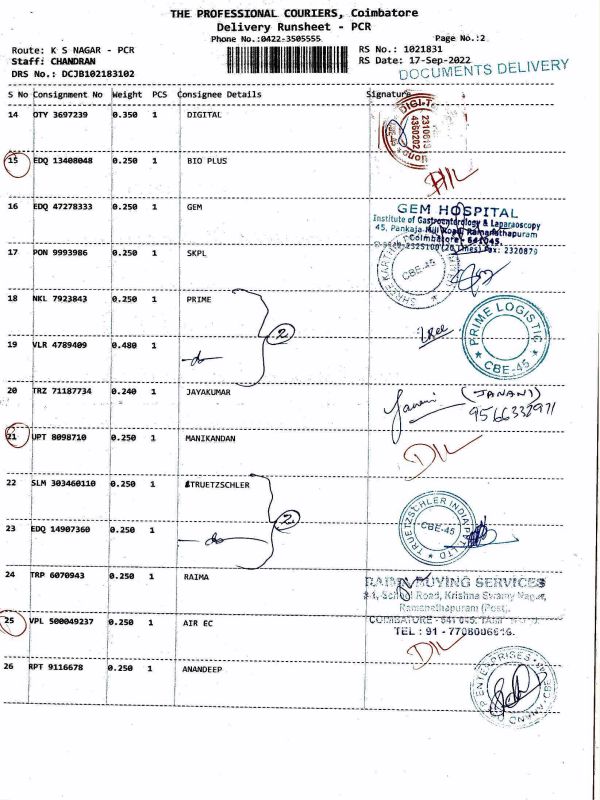 THE PROFESSIONAL COURIERS, Coimbatore
Delivery Runsheet - PCR
Phone No.:0422-3505555
Page No.:2
Route: K S NAGAR - PCR
RS No.: 1021831
Staff: CHANDRAN
RS Date: 17-Sep-2022
DRS No.: DCJB102183102
DOCUMENTS DELIVERY
S No Consignment No Weight PCS Consignee Details Signature
14 OTY 3697239 0.350 1 DIGITAL
15 EDQ 13408048 0.250 1 BIO PLUS
D/L
16 EDQ 47278333 0.250 1 GEM
GEM HOSPITAL
Institute of Gastroenterology & Laparaoscopy
45, Pankaja Mill Road, Ramanathapuram
Coimbatore - 641045.
2325100 (20 Lines) Fax: 2320879
17 PON 9993986 0.250 1 SKPL
CBE-45
18 NKL 7923843 0.250 1 PRIME
2
PRIME LOGISTIC
CBE-45
19 VLR 4789409 0.480 1 -do-
20 TRZ 71187734 0.240 1 JAYAKUMAR
(JANANI)
9566332971
21 UPT 8098710 0.250 1 MANIKANDAN
D/L
22 SLM 303460110 0.250 1 STRUETZSCHLER
2
TRUETZSCHLER INDIA PVT LTD
CBE-45
23 EDQ 14907360 0.250 1 -do-
24 TRP 6070943 0.250 1 RAIMA
RAIMA BUYING SERVICES
# 1, School Road, Krishna Swamy Nagar,
Ramanathapuram (Post),
COIMBATORE - 641 045.
TEL : 91 - 7708006616.
25 VPL 500049237 0.250 1 AIR EC
D/L
26 RPT 9116678 0.250 1 ANANDEEP
ENTERPRISES